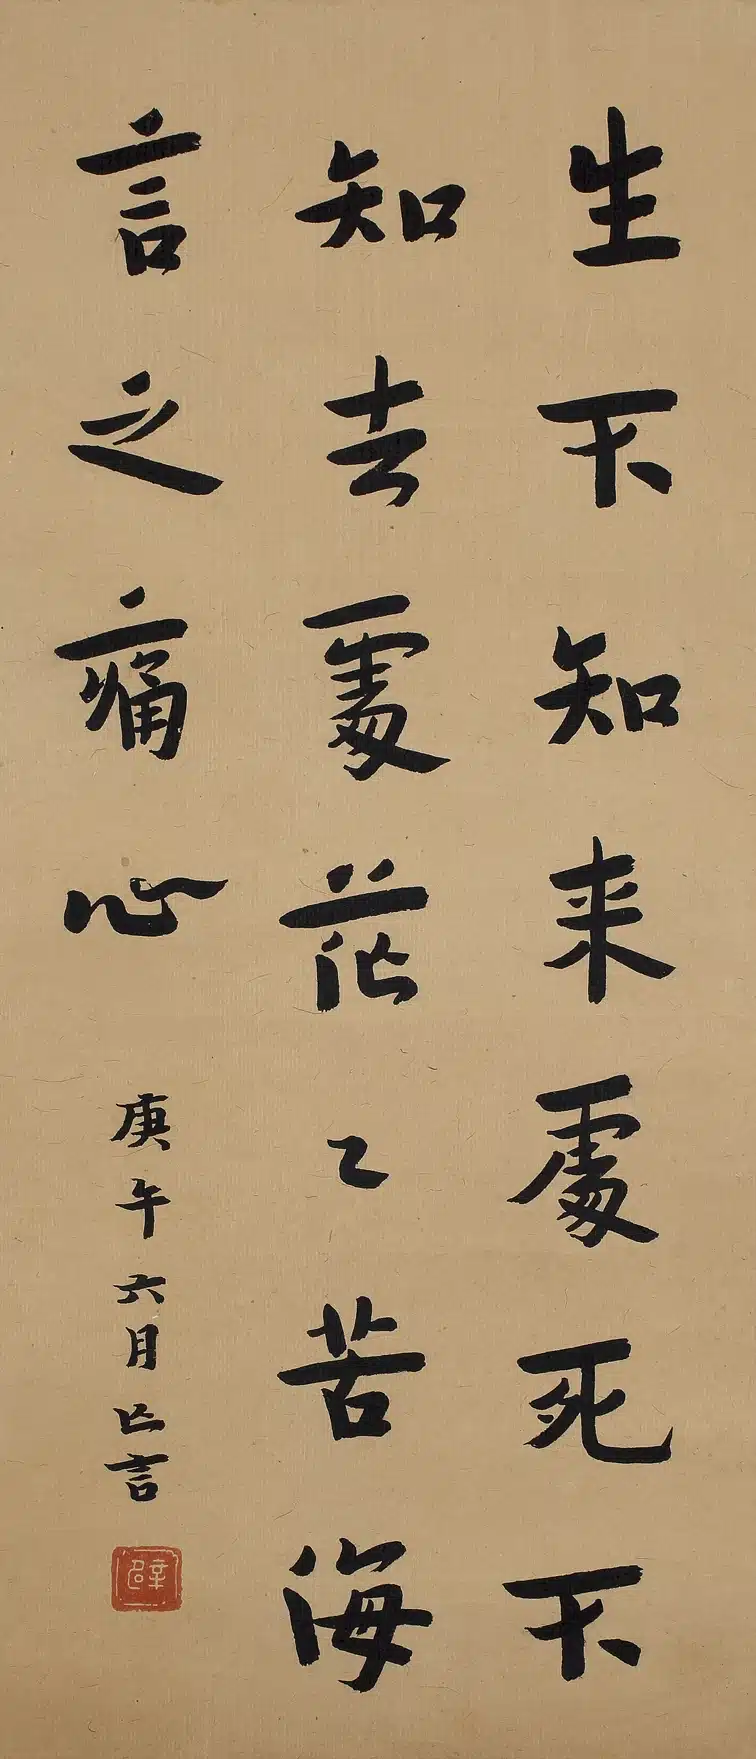 生不知来處死不
知去處茫〻苦海
言之痛心
庚午六月亡言